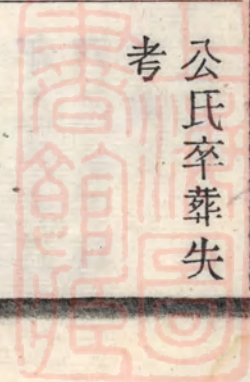 公氏卒葬失
考